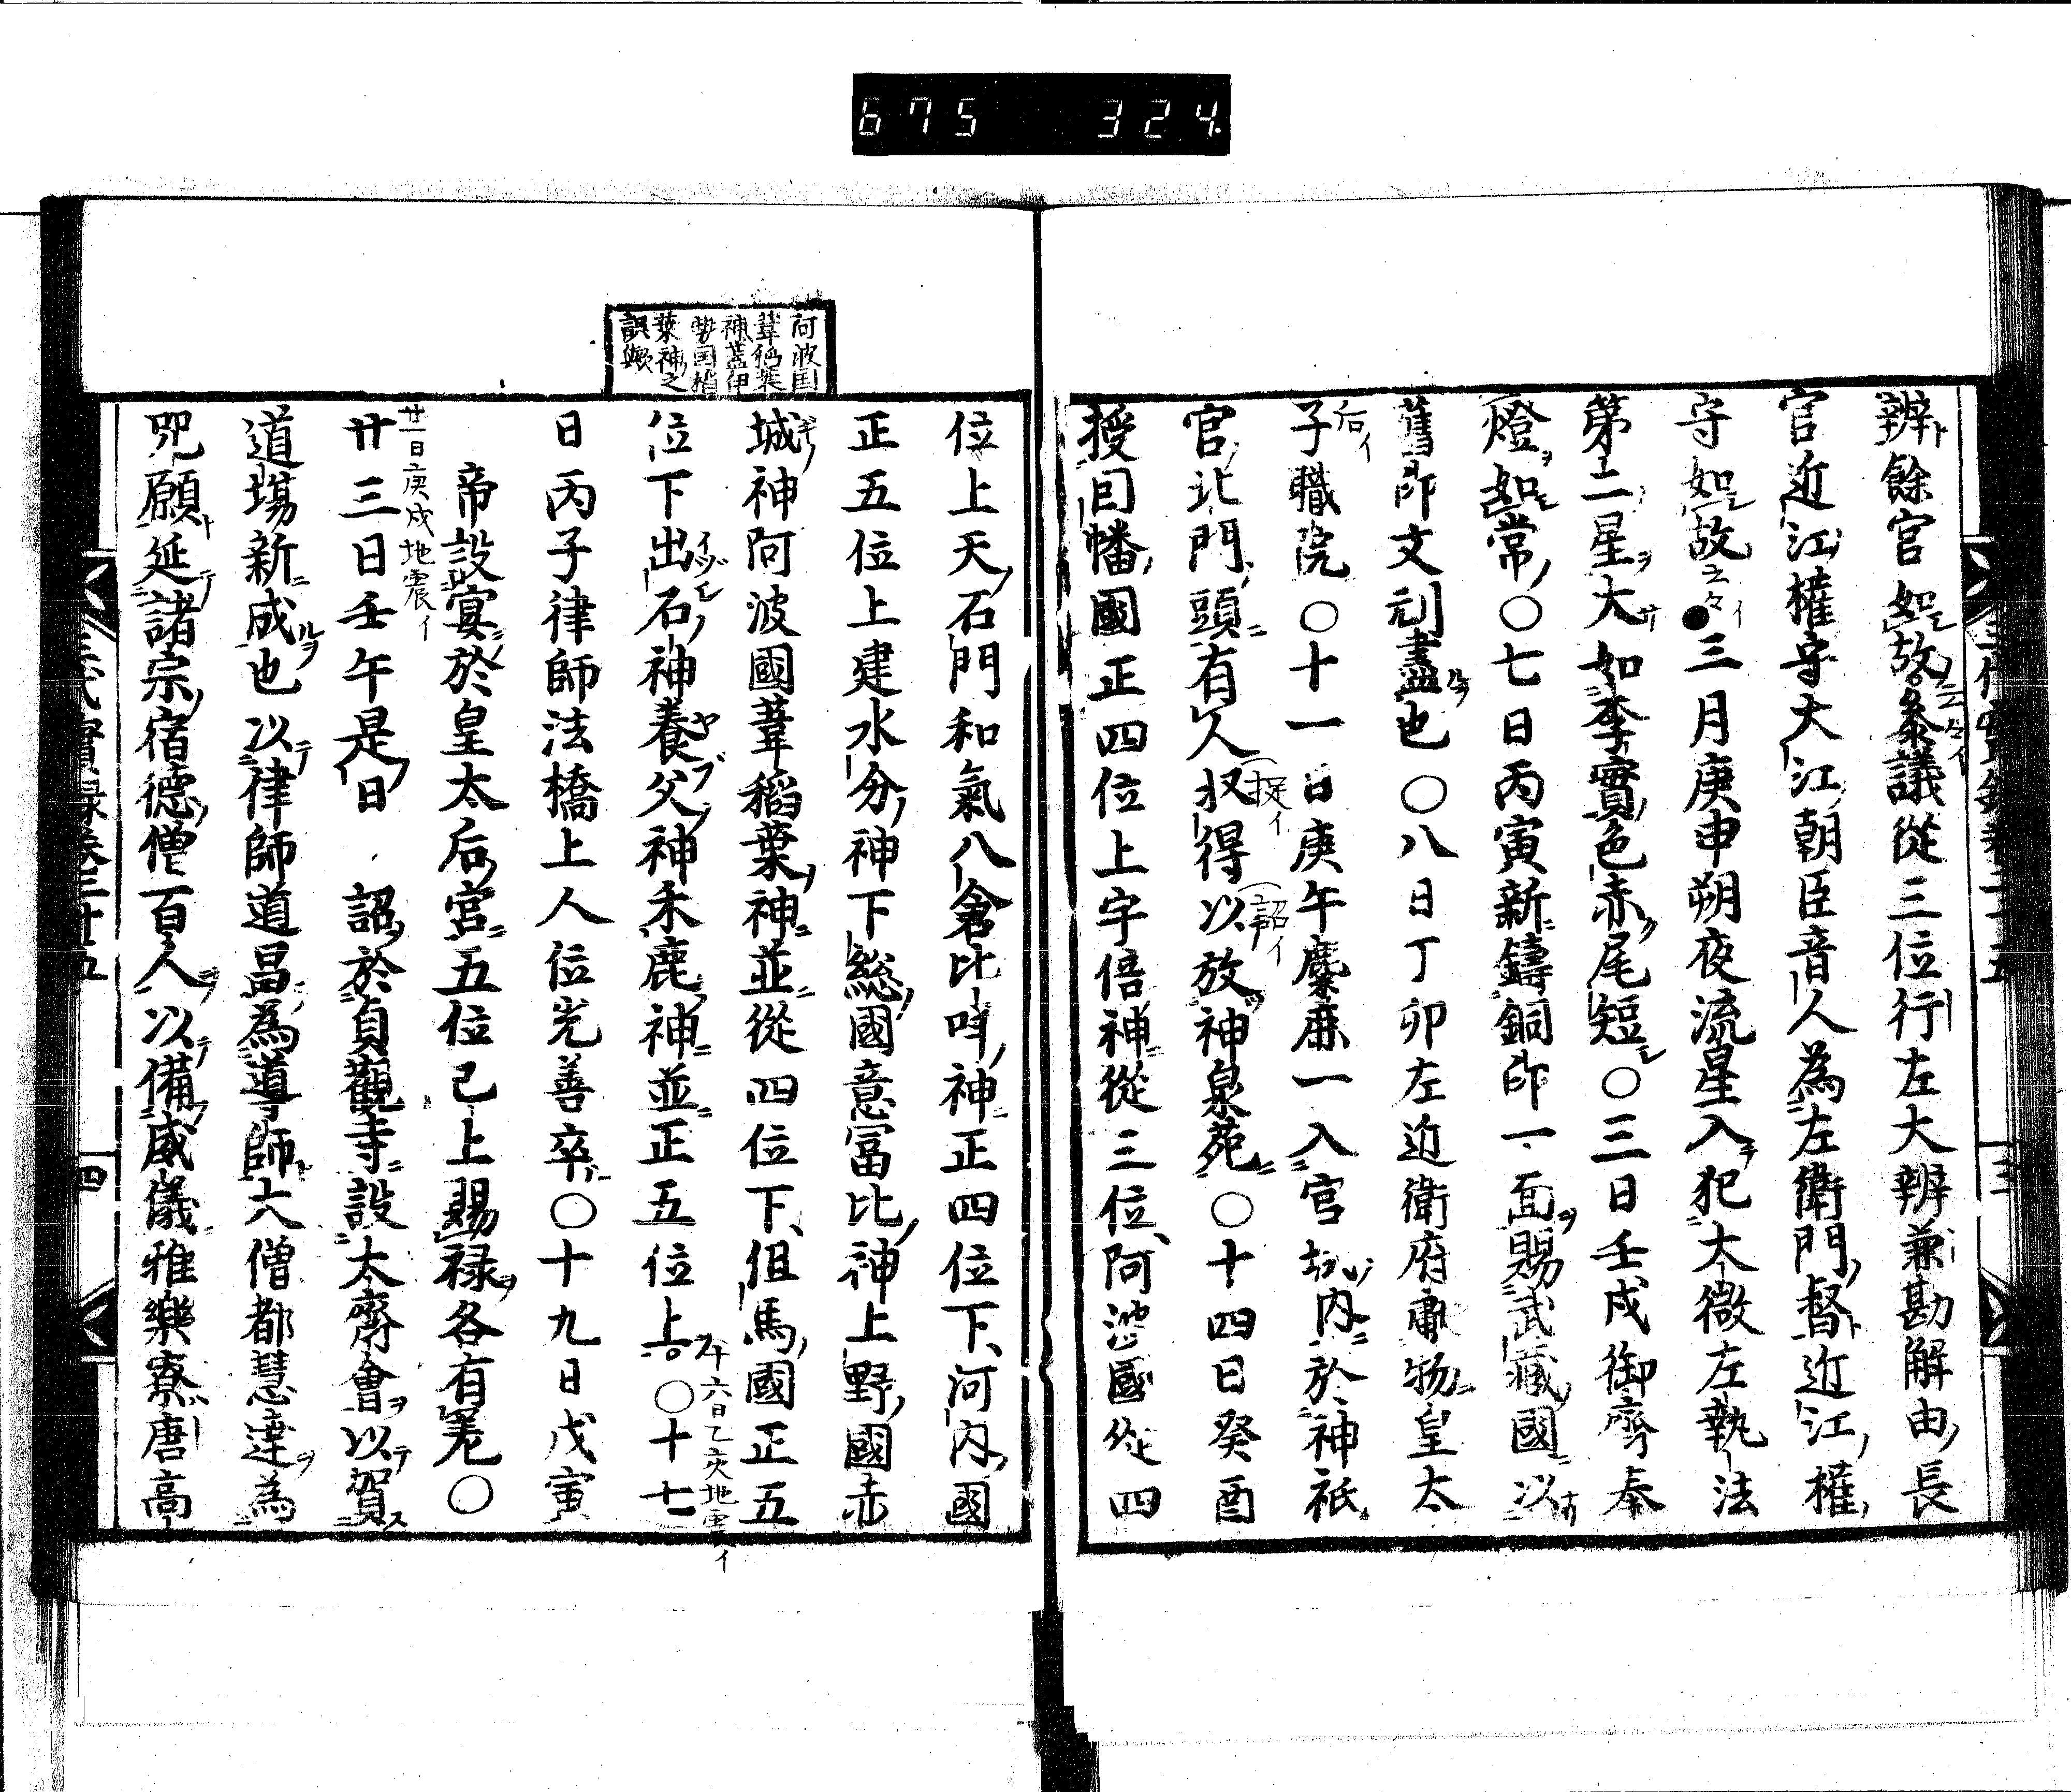 675 324
辨餘官如故參議從三位行左大辨兼勘解由長
官近江權守大江朝臣音人為左衛門督近江權
守如故云々イ●三月庚申朔夜流星入犯太微左執法
第二星大如李實色赤尾短○三日壬戌御齊奉
燈如常○七日丙寅新鑄銅印一面賜武藏國以
舊印文刓盡也○八日丁卯左近衛府肅物皇太
子職院○十一日庚午麋鹿一入官城内於神祇
官北門頭有人扠得以放神泉苑○十四日癸酉
授囙幡國正四位上宇倍神從三位阿波國從四
位上天石門和氣八倉比咩神正四位下河内國
正五位上建水分神下總國意冨比神上野國赤
城神阿波國葦稻葉神並從四位下但馬國正五
位下出石神養父神禾鹿神並正五位上○十七
日丙子律師法橋上人位光善卒○十九日戊寅
帝設宴於皇太后宮五位已上賜禄各有差○
廿三日壬午是日詔於貞觀寺設太齊會以賀
道塲新成也以律師道昌為導師大僧都慧達為
咒願延諸宗宿德僧百人以備威儀雅樂寮唐高
后イ
廿一日庚戌地震イ
十六日乙亥地震イ
阿波国
葦稻葉
神蓋伊
勢国稻
葉神之
誤歟
三代實録卷二十五
四